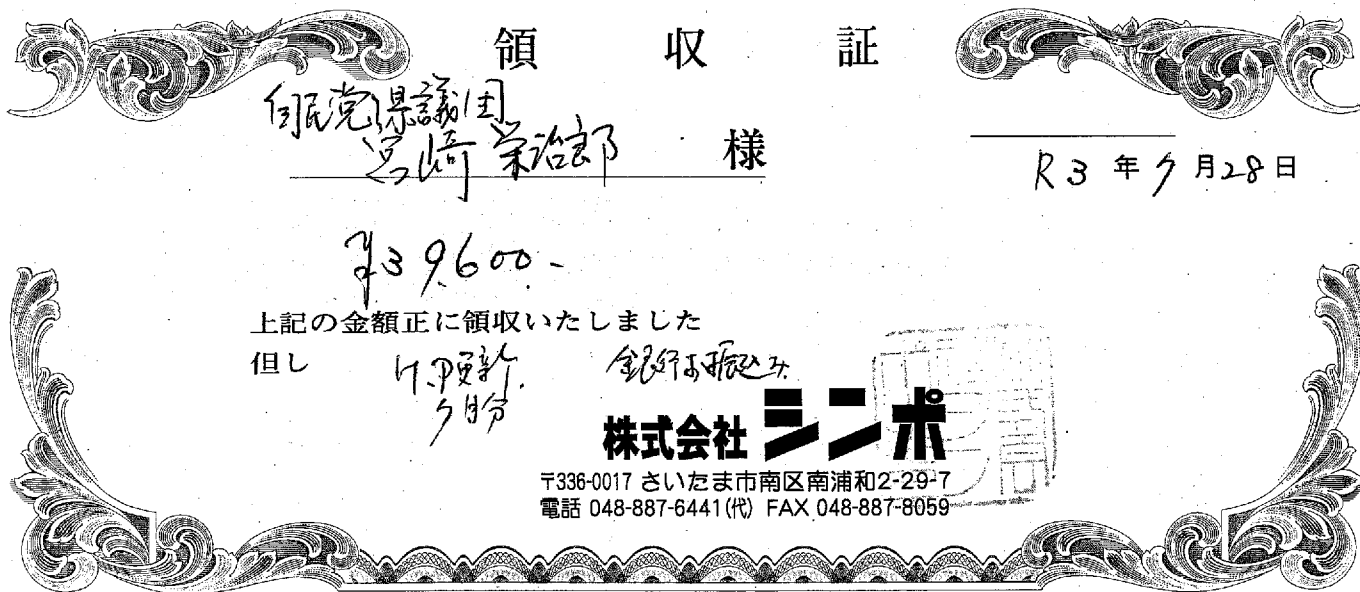 領収証
自民党県議団
宮崎栄治郎 様
R3年7月28日
¥39,600-
上記の金額正に領収いたしました
但し H.P更新 銀行お振込み
7月分
株式会社シンポ
〒336-0017 さいたま市南区南浦和2-29-7
電話 048-887-6441(代) FAX 048-887-8059